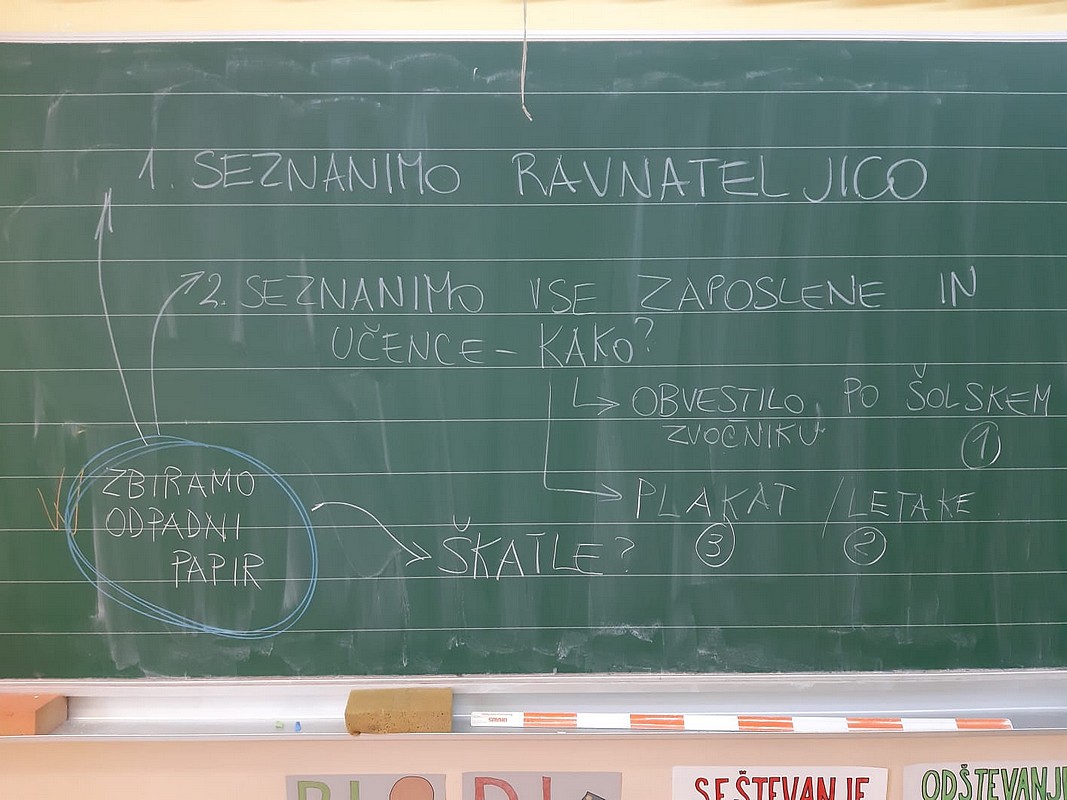 1. SEZNANIMO RAVNATELJICO
2. SEZNANIMO VSE ZAPOSLENE IN
UČENCE - KAKO?
OBVESTILO PO ŠOLSKEM
ZVOČNIKU
1
PLAKAT / LETAKE
3 2
ZBIRAMO
ODPADNI
PAPIR
ŠKATLE?
SEŠTEVANJE
ODŠTEVANJE